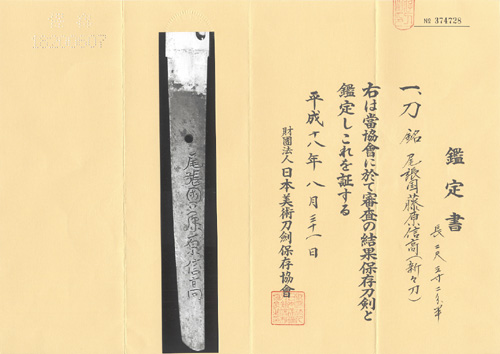 鑑定書
一、刀 銘 尾張国藤原信高（新々刀）
長 二尺三寸二分半
右は當協會に於て審査の結果保存刀剣と
鑑定しこれを証する
平成十八年八月三十一日
財團法人日本美術刀劍保存協會
№ 374728
尾張国藤原信高